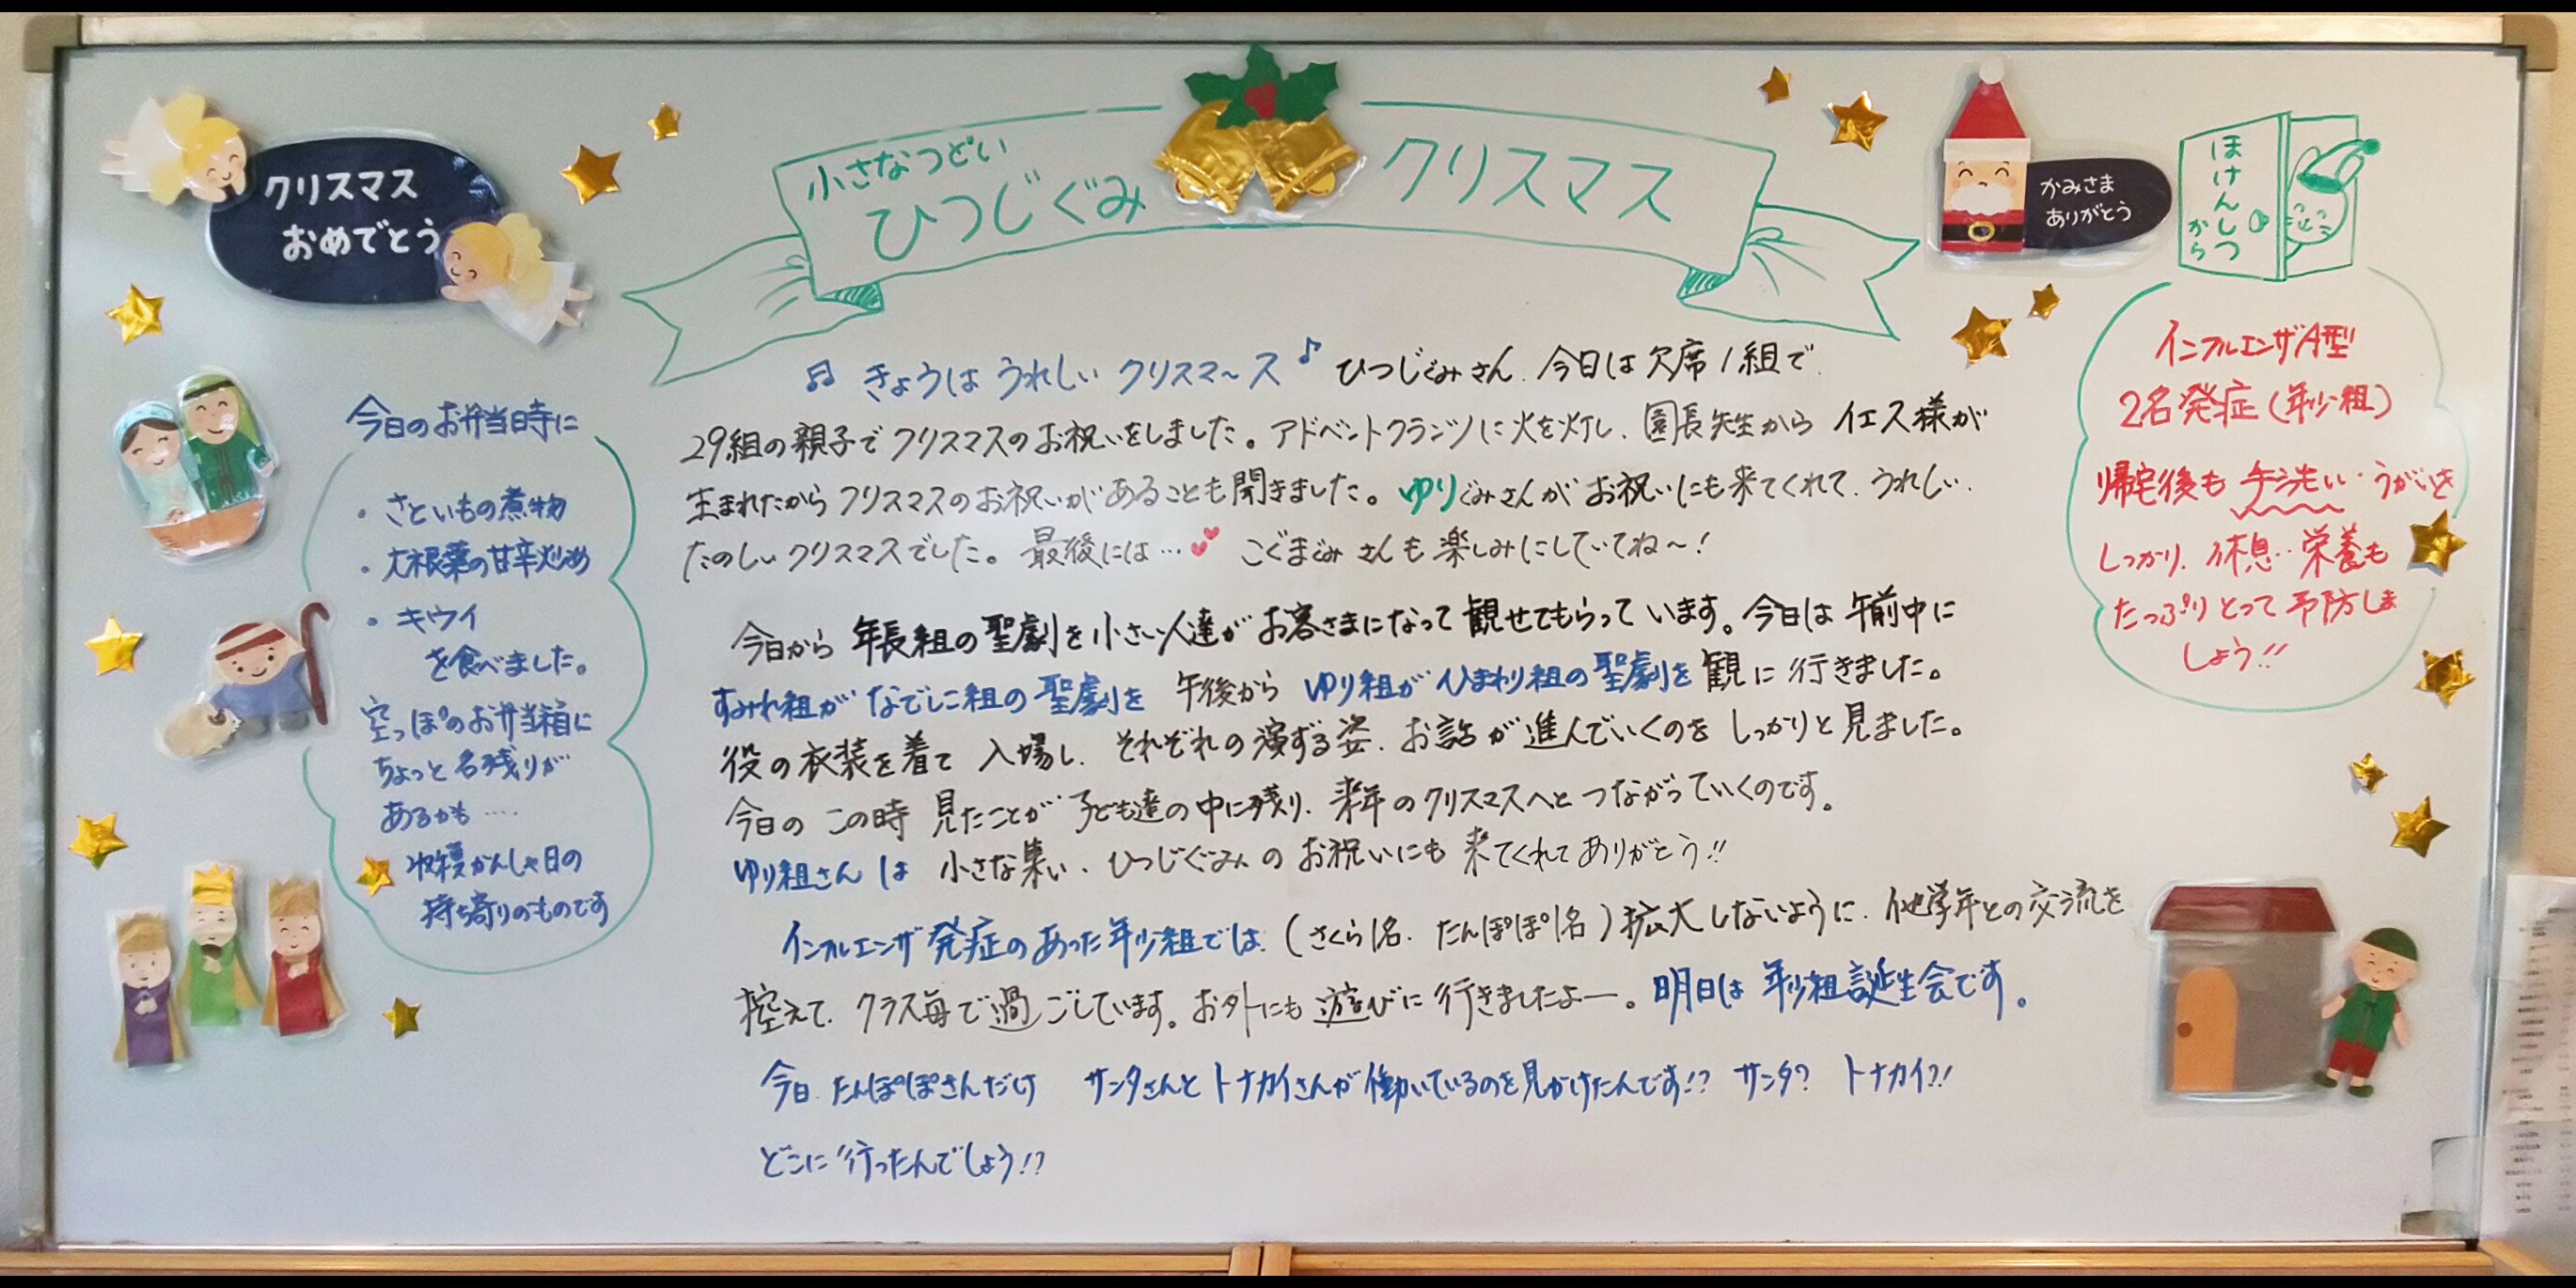 クリスマス
おめでとう
小さなつどい
ひつじぐみ クリスマス
かみさま
ありがとう
ほけんしつ
から
きょうは うれしい クリスマ〜ス ひつじぐみさん、今日は欠席1組で、
29組の親子でクリスマスのお祝いをしました。アドベントクランツに火を灯し、園長先生から イエス様が
生まれたからクリスマスのお祝いがあることも聞きました。ゆりぐみさんがお祝いにも来てくれて、うれしい、
たのしいクリスマスでした。最後には… こぐまぐみさんも楽しみにしていてね〜!
今日から 年長組の聖劇を小さい人達が お客さまになって観せてもらっています。今日は 午前中に
すみれ組が なでしこ組の聖劇を 午後から ゆり組が ひまわり組の聖劇を観に行きました。
役の衣装を着て 入場し、それぞれの演ずる姿、お話が進んでいくのを しっかりと見ました。
今日の この時 見たことが 子ども達の中に残り、来年のクリスマスへと つながっていくのです。
ゆり組さんは 小さな集い、ひつじぐみの お祝いにも 来てくれてありがとう!!
インフルエンザ発症のあった年少組では、(さくら1名、たんぽぽ1名)拡大しないように、他学年との交流を
控えて、クラス毎で過ごしています。お外にも遊びに行きましたよー。明日は 年少組誕生会です。
今日、たんぽぽさんだけ サンタさんと トナカイさんが働いているのを見かけたんです!? サンタ? トナカイ?!
どこに行ったんでしょう!?
今日のお弁当時に
・さといもの煮物
・大根葉の甘辛炒め
・キウイ
を食べました。
空っぽのお弁当箱に
ちょっと名残りが
あるかも‥‥
収穫かんしゃ日の
持ち寄りのものです
インフルエンザA型
2名発症(年少組)
帰宅後も 手洗い・うがいを
しっかり、休息・栄養も
たっぷりとって予防しま
しょう!!